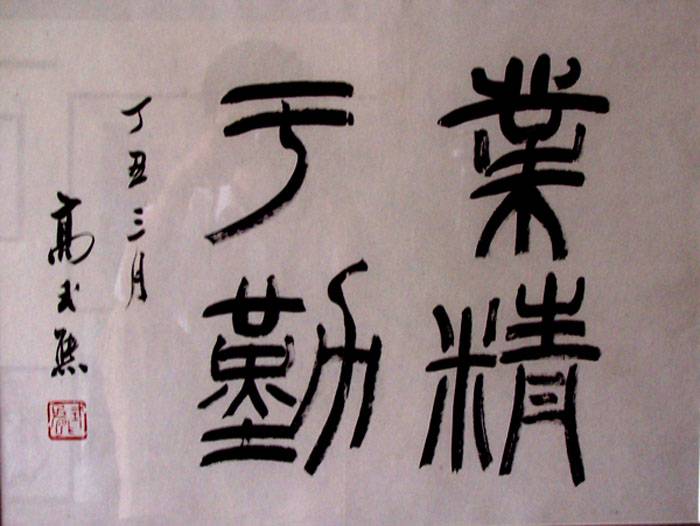 業精
于勤
丁丑三月
高式熊